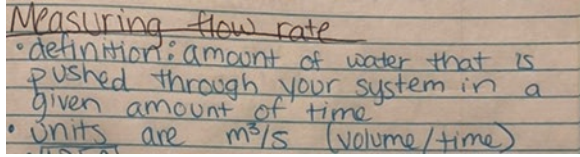 Measuring flow rate
• definition: amount of water that is
pushed through your system in a
given amount of time
• Units are m³/s (volume/time)